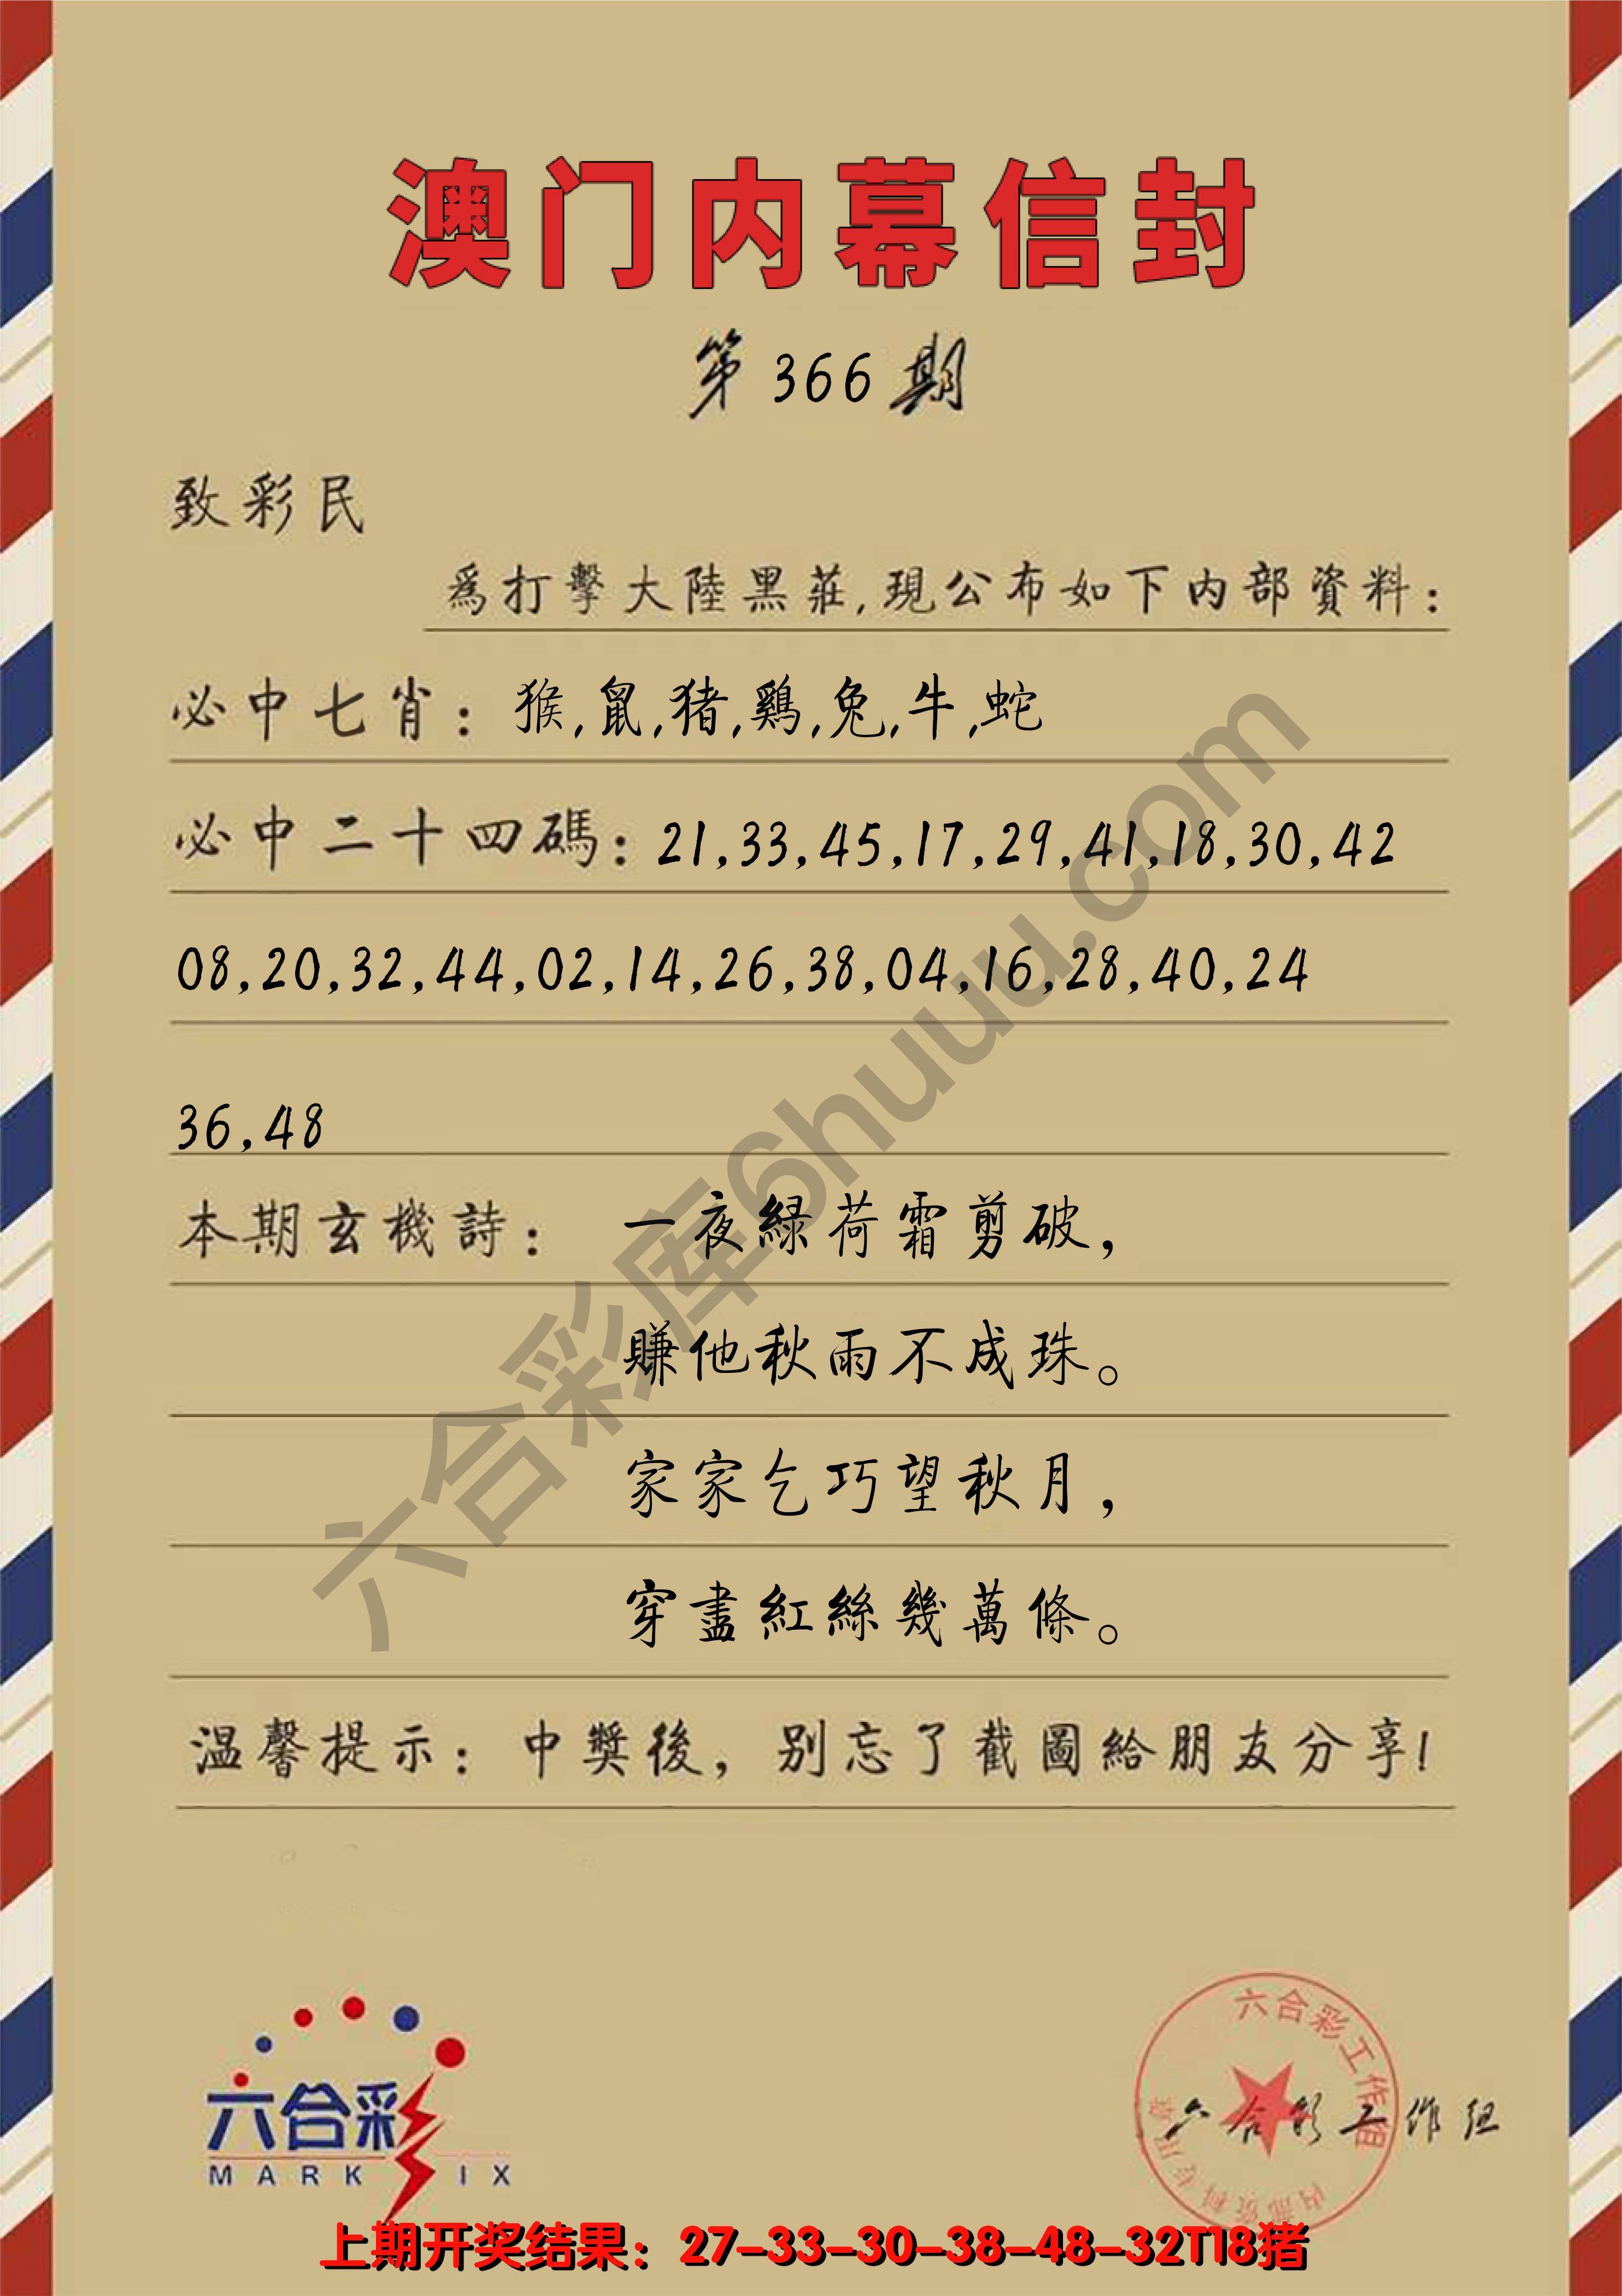 澳门内幕信封
第366期
致彩民
爲打擊大陸黑莊,現公布如下内部資料:
必中七肖: 猴,鼠,猪,鷄,兔,牛,蛇
必中二十四碼: 21,33,45,17,29,41,18,30,42
08,20,32,44,02,14,26,38,04,16,28,40,24
36,48
本期玄機詩: 一夜緑荷霜剪破,
賺他秋雨不成珠。
家家乞巧望秋月,
穿盡紅絲幾萬條。
温馨提示: 中獎後, 别忘了截圖給朋友分享!
六合彩库6huuu.com
六合彩
MARK IX
六合彩工作组
六合彩工作组
上期开奖结果: 27-33-30-38-48-32T18猪